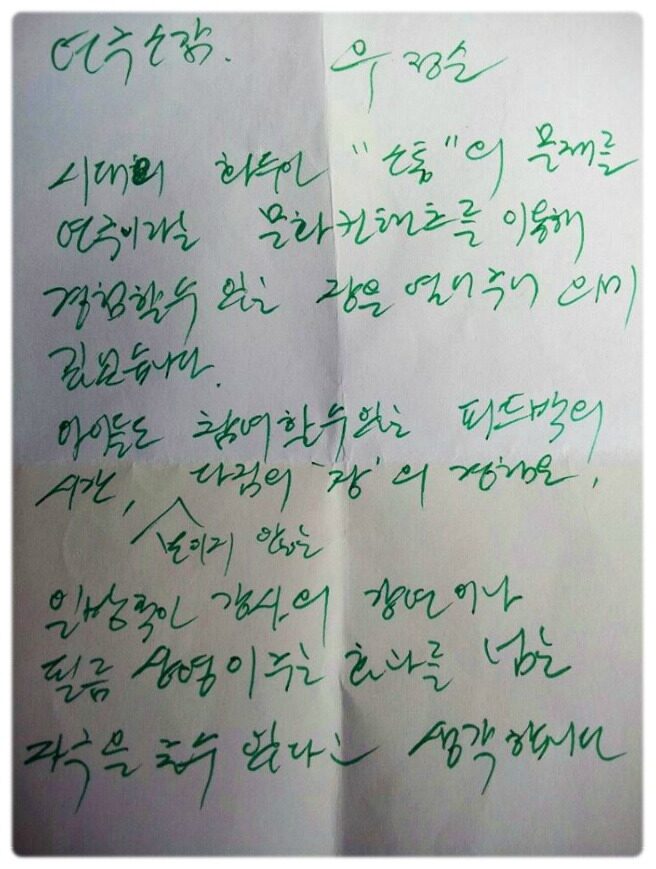 연극소감. 우정순
시대의 화두인 "소통"의 문제를
연극이라는 문화컨텐츠를 이용해
경험할수 있는 장을 열어주니 의미
깊었습니다.
아이들도 참여할수있는 피드백의
시간, 다짐의 '장'의 경험은,
보이지 않는
일방적인 강사의 강연이나
필름 상영이 주는 효과를 넘는
자극을 줄수 있다고 생각합니다